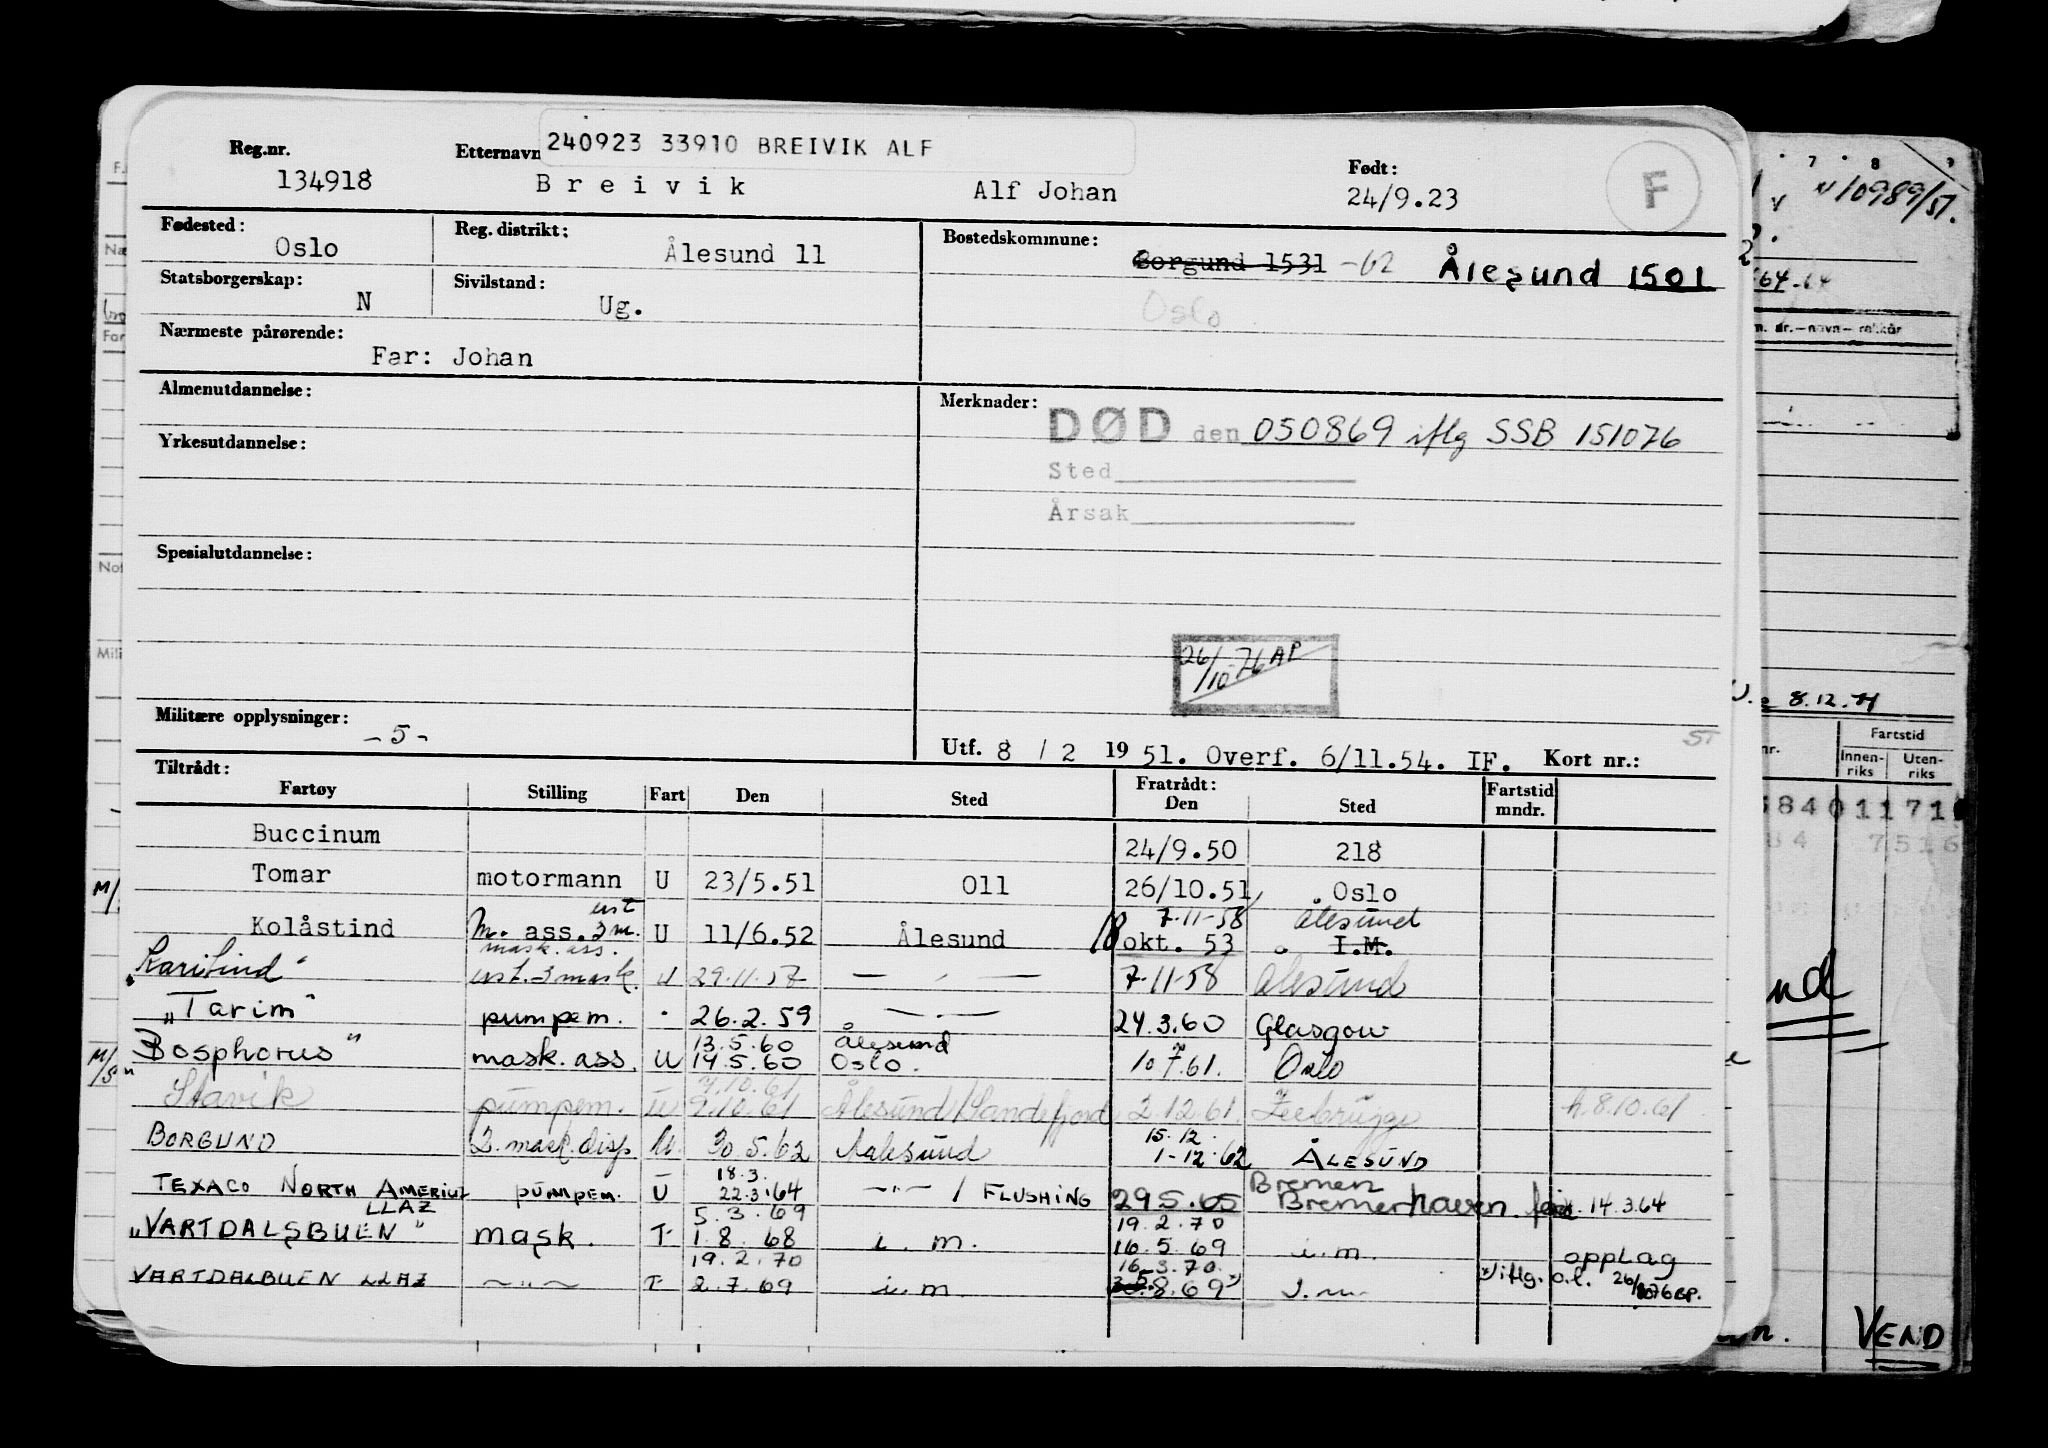 240923 33910 BREIVIK ALF
Reg.nr. Etternavn Født:
134918 Breivik Alf Johan 24/9.23 F
Fødested: Reg. distrikt: Bostedskommune:
Oslo Ålesund 11 Borgund 1531 -62 Ålesund 1501
Statsborgerskap: Sivilstand:
N Ug. Oslo
Nærmeste pårørende:
Far: Johan
Almenutdannelse: Merknader:
DØD den 050869 iflg SSB 151076
Yrkesutdannelse:
Sted
Årsak
Spesialutdannelse:
26/10-76 AP
Militære opplysninger:
-5-
Utf. 8 / 2 19 51. Overf. 6/11.54. IF. Kort nr.:
Tiltrådt: Fratrådt:
Fartøy Stilling Fart Den Sted Den Sted Fartstid mndr.
Buccinum 24/9.50 218
Tomar motormann U 23/5.51 011 26/10.51 Oslo
ust 7-11-58 Ålesund
Kolåstind M. ass. 3 m. U 11/6.52 Ålesund 18 okt. 53 I.M.
mask. ass.
"Karitind" ust. 3 mask. U 29.11.57 — " — 7-11-58 Ålesund
"Tarim" pumpem. " 26.2.59 — " — 24.3.60 Glasgow
13.5.60 Ålesund
"Bosphorus" mask. ass. U 14.5.60 Oslo. 10 7.61. Oslo
7.10.61
Stavik pumpem. U 9.10.61 Ålesund/Sandefjord 2.12.61. Zeebrügge h. 8.10.61
15.12.
BORGUND 2. mask. disp. U. 30.5.62 Aalesund 1-12.62 ÅLESUND
18.3. Bremen
TEXACO NORTH AMERICA pumpem. U 22.3.64 — " — / FLUSHING 29.5.65 Bremerhaven 14.3.64
LLAZ 5.3.69 19.2.70
"VARTDALSBUEN" mask. T 1.8.68 i.m. 16.5.69 i.m. opplag
19.2.70 16.3.70
VARTDALBUEN LLAZ — " — T 2.7.69 i.m. 8.69 x) I.m. x) iflg. o.l. 26/1076 BP.
N 10989/51.
8.12.71
Fartstid
Innen-riks Uten-riks
VEND